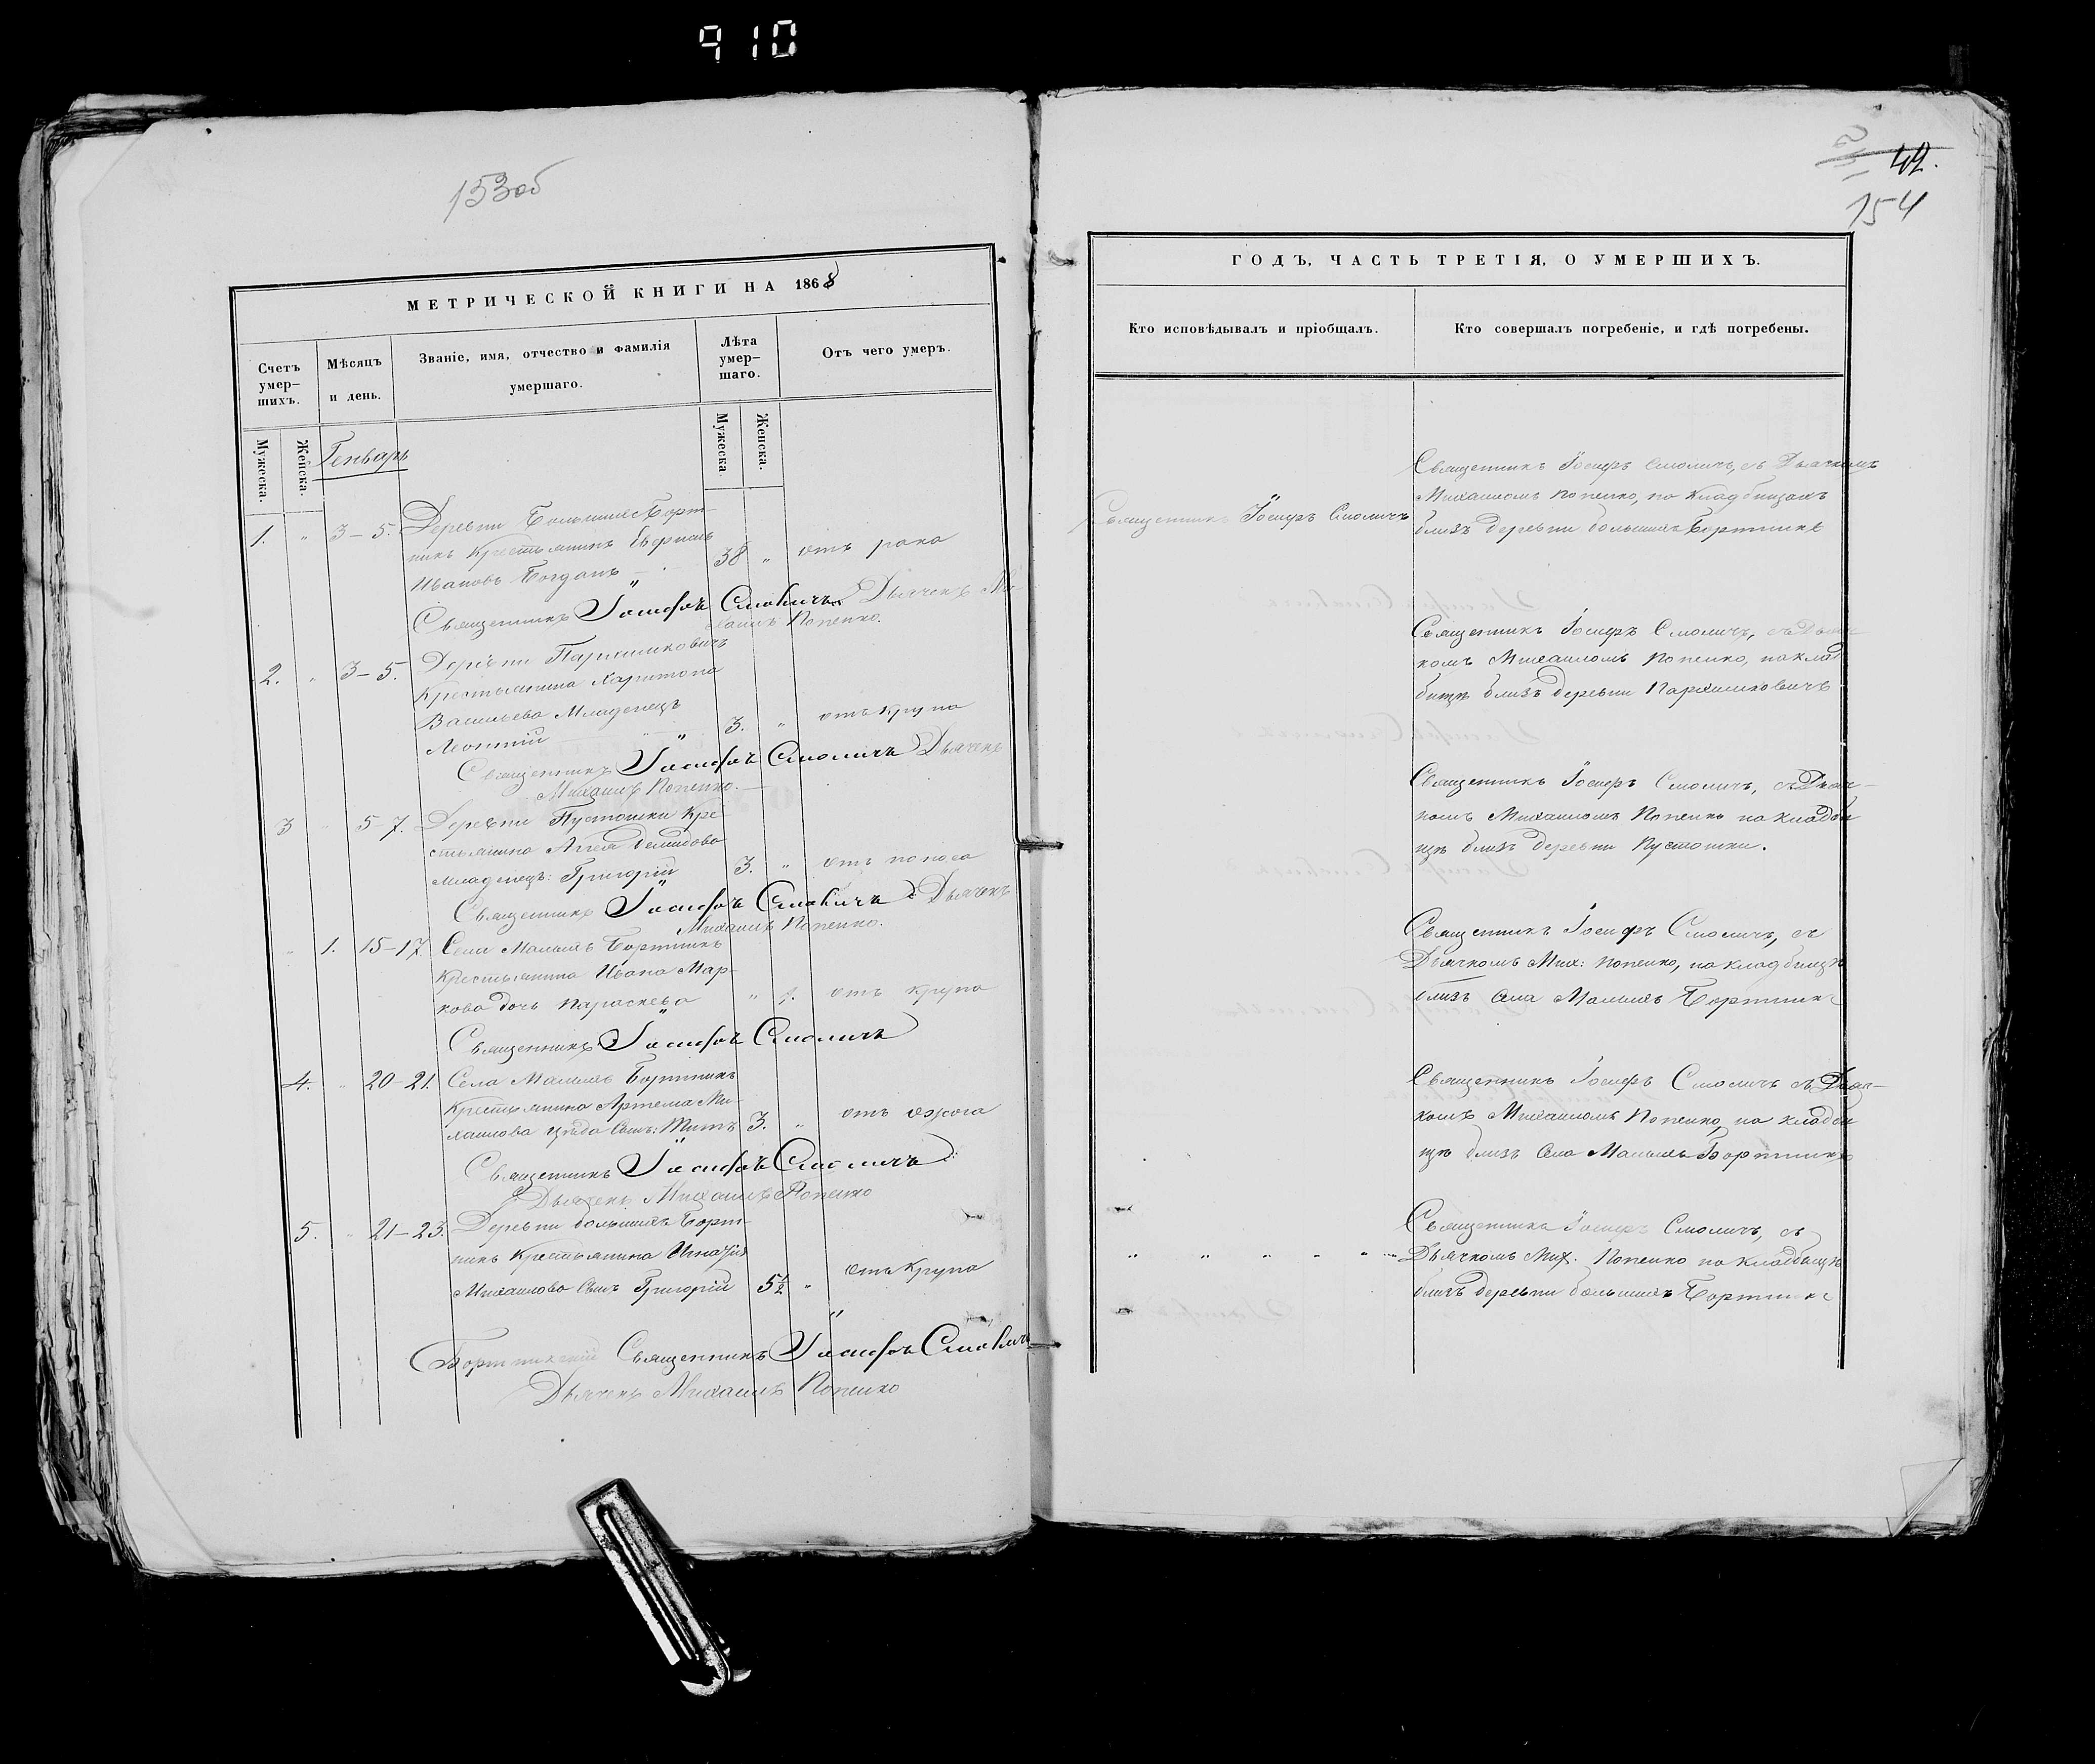 910
153об
МЕТРИЧЕСКОЙ КНИГИ НА 1868
Счетъ умер-
шихъ.
Мѣсяцъ
и день.
Званіе, имя, отчество и фамилія
умершаго.
Лѣта
умер-
шаго.
Отъ чего умеръ.
Мужеска.
Женска.
Мужеска.
Женска.
Генварь
1. " 3–5. Деревни Большихъ Борт-
никъ Крестьянинъ
Ивановъ Богданъ 38 " отъ рака
Священникъ Іосифъ Смоличъ Дьячекъ Ми-
хаилъ Попенко.
2. " 3–5. Деревни Пархимковичъ
Крестьянина Харитона
Васильева Младенецъ
Леонтій 3. " отъ крупа
Священникъ Іосифъ Смоличъ Дьячекъ
Михаилъ Попенко.
3 " 5–7. Деревни Пустошки Кре-
стьянина Демидова
младенецъ: Григорій 3. " отъ поноса
Священникъ Іосифъ Смоличъ Дьячекъ
Михаилъ Попенко.
" 1. 15–17. Села Малыхъ Бортникъ
Крестьянина Ивана Мар-
кова дочь Параскева " отъ крупа
Священникъ Іосифъ Смоличъ
4. " 20–21. Села Малыхъ Бортникъ
Крестьянина Артема Ми-
хаилова Сынъ: Титъ 3. " отъ ожога
Священникъ Іосифъ Смоличъ
Дьячекъ Михаилъ Попенко
5. " 21–23. Деревни большихъ Борт-
никъ Крестьянина Игнатія
Михаилова Сынъ Григорій 5½ " отъ Крупа
Бортникскій Священникъ Іосифъ Смоличъ
Дьячекъ Михаилъ Попенко
49.
154
ГОДЪ, ЧАСТЬ ТРЕТІЯ, О УМЕРШИХЪ.
Кто исповѣдывалъ и пріобщалъ.
Кто совершалъ погребеніе, и гдѣ погребены.
Священникъ Іосифъ Смоличъ
Священникъ Іосифъ Смоличъ, съ Дьячкомъ
Михаиломъ Попенко, на кладбищахъ
близъ деревни большихъ Бортникъ
Священникъ Іосифъ Смоличъ, съ Дьяч-
комъ Михаиломъ Попенко, на клад
бищѣ близъ деревни Пархимковичъ
Священникъ Іосифъ Смоличъ, съ Дьяч-
комъ Михаиломъ Попенко на кладби
щѣ близъ деревни Пустошки.
Священникъ Іосифъ Смоличъ, съ
Дьячкомъ Мих: Попенко, на кладбищѣ
близъ села Малыхъ Бортникъ
Священникъ Іосифъ Смоличъ съ Дьяч-
комъ Михаиломъ Попенко, на кладби
щѣ близъ села Малыхъ Бортникъ
Священникъ Іосифъ Смоличъ, съ
" " " " " Дьячкомъ Мих. Попенко на кладбищѣ
близъ деревни большихъ Бортникъ